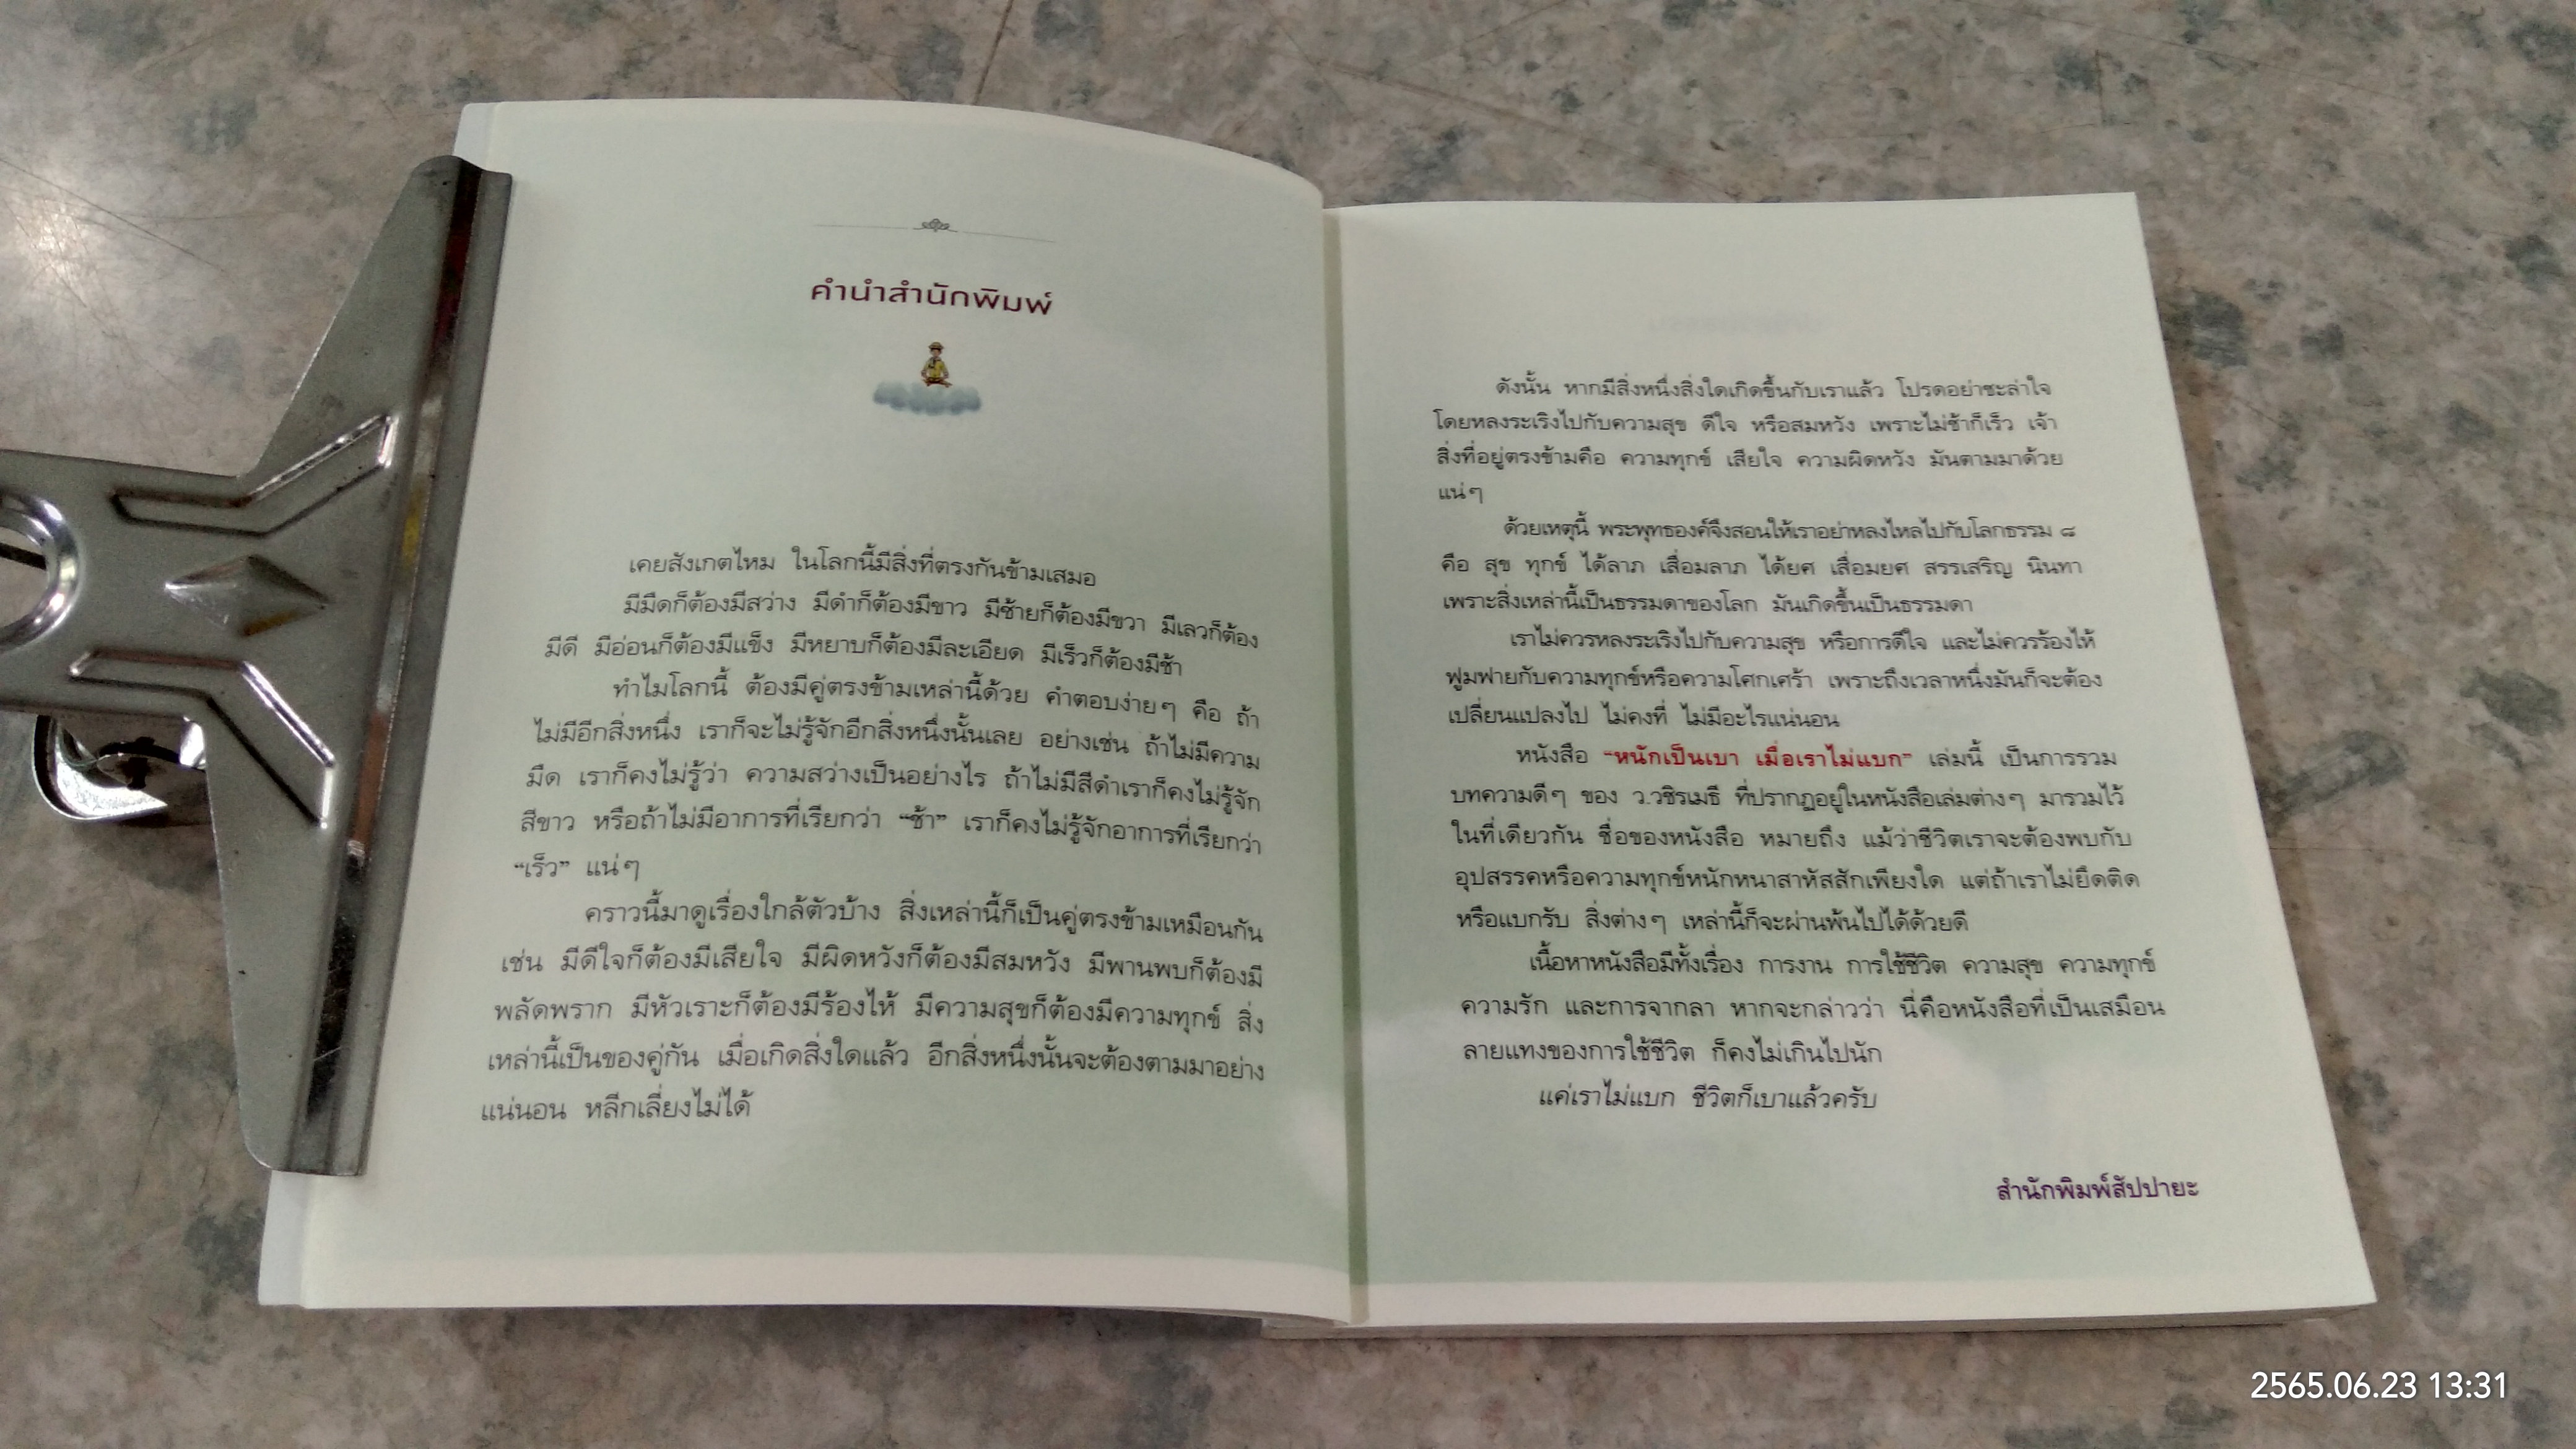 คำนำสำนักพิมพ์
เคยสังเกตไหม ในโลกนี้มีสิ่งที่ตรงกันข้ามเสมอ
มีมืดก็ต้องมีสว่าง มีดำก็ต้องมีขาว มีซ้ายก็ต้องมีขวา มีเลวก็ต้อง
มีดี มีอ่อนก็ต้องมีแข็ง มีหยาบก็ต้องมีละเอียด มีเร็วก็ต้องมีช้า
ทำไมโลกนี้ ต้องมีคู่ตรงข้ามเหล่านี้ด้วย คำตอบง่ายๆ คือ ถ้า
ไม่มีอีกสิ่งหนึ่ง เราก็จะไม่รู้จักอีกสิ่งหนึ่งนั้นเลย อย่างเช่น ถ้าไม่มีความ
มืด เราก็คงไม่รู้ว่า ความสว่างเป็นอย่างไร ถ้าไม่มีสีดำเราก็คงไม่รู้จัก
สีขาว หรือถ้าไม่มีอาการที่เรียกว่า “ช้า” เราก็คงไม่รู้จักอาการที่เรียกว่า
“เร็ว” แน่ๆ
คราวนี้มาดูเรื่องใกล้ตัวบ้าง สิ่งเหล่านี้ก็เป็นคู่ตรงข้ามเหมือนกัน
เช่น มีดีใจก็ต้องมีเสียใจ มีผิดหวังก็ต้องมีสมหวัง มีพานพบก็ต้องมี
พลัดพราก มีหัวเราะก็ต้องมีร้องไห้ มีความสุขก็ต้องมีความทุกข์ สิ่ง
เหล่านี้เป็นของคู่กัน เมื่อเกิดสิ่งใดแล้ว อีกสิ่งหนึ่งนั้นจะต้องตามมาอย่าง
แน่นอน หลีกเลี่ยงไม่ได้
ดังนั้น หากมีสิ่งหนึ่งสิ่งใดเกิดขึ้นกับเราแล้ว โปรดอย่าชะล่าใจ
โดยหลงระเริงไปกับความสุข ดีใจ หรือสมหวัง เพราะไม่ช้าก็เร็ว เจ้า
สิ่งที่อยู่ตรงข้ามคือ ความทุกข์ เสียใจ ความผิดหวัง มันตามมาด้วย
แน่ๆ
ด้วยเหตุนี้ พระพุทธองค์จึงสอนให้เราอย่าหลงไหลไปกับโลกธรรม ๘
คือ สุข ทุกข์ ได้ลาภ เสื่อมลาภ ได้ยศ เสื่อมยศ สรรเสริญ นินทา
เพราะสิ่งเหล่านี้เป็นธรรมดาของโลก มันเกิดขึ้นเป็นธรรมดา
เราไม่ควรหลงระเริงไปกับความสุข หรือการดีใจ และไม่ควรร้องไห้
ฟูมฟายกับความทุกข์หรือความโศกเศร้า เพราะถึงเวลาหนึ่งมันก็จะต้อง
เปลี่ยนแปลงไป ไม่คงที่ ไม่มีอะไรแน่นอน
หนังสือ “หนักเป็นเบา เมื่อเราไม่แบก” เล่มนี้ เป็นการรวม
บทความดีๆ ของ ว.วชิรเมธี ที่ปรากฏอยู่ในหนังสือเล่มต่างๆ มารวมไว้
ในที่เดียวกัน ชื่อของหนังสือ หมายถึง แม้ว่าชีวิตเราจะต้องพบกับ
อุปสรรคหรือความทุกข์หนักหนาสาหัสสักเพียงใด แต่ถ้าเราไม่ยึดติด
หรือแบกรับ สิ่งต่างๆ เหล่านี้ก็จะผ่านพ้นไปได้ด้วยดี
เนื้อหาหนังสือมีทั้งเรื่อง การงาน การใช้ชีวิต ความสุข ความทุกข์
ความรัก และการจากลา หากจะกล่าวว่า นี่คือหนังสือที่เป็นเสมือน
ลายแทงของการใช้ชีวิต ก็คงไม่เกินไปนัก
แค่เราไม่แบก ชีวิตก็เบาแล้วครับ
สำนักพิมพ์สัปปายะ
2565.06.23 13:31